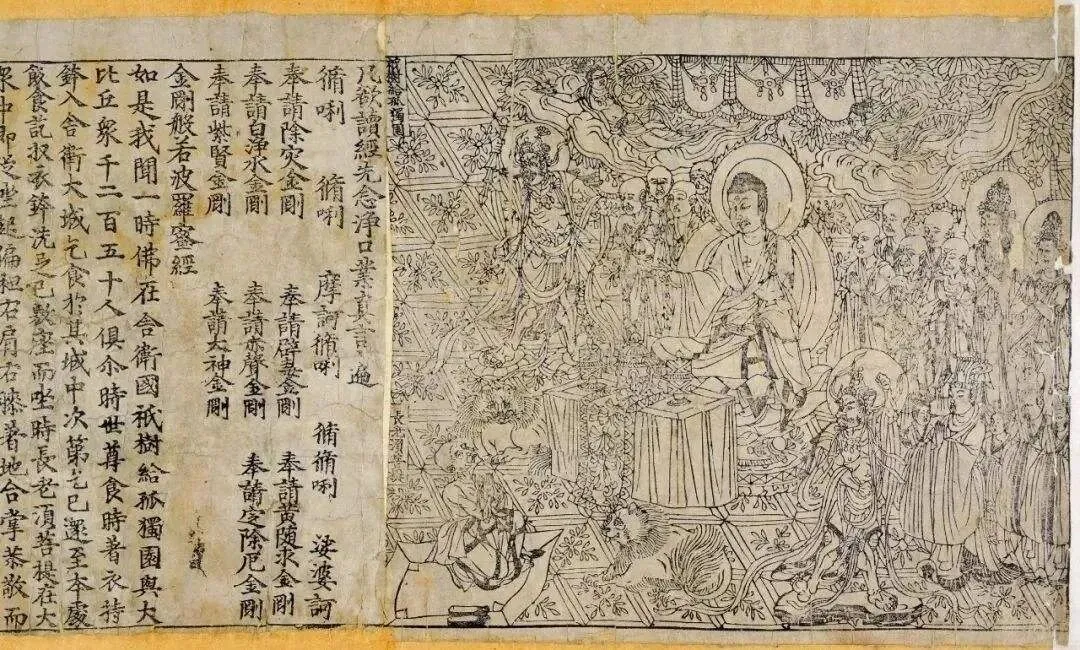 祇樹給孤獨園
長老須菩提
凡欲讀經先念淨口業真言一遍
脩唎 脩唎 摩訶脩唎 脩脩唎 娑婆訶
奉請除灾金剛 奉請辟毒金剛 奉請黃随求金剛
奉請白淨水金剛 奉請赤聲金剛 奉請定除厄金剛
奉請紫賢金剛 奉請大神金剛
金剛般若波羅蜜經
如是我聞一時佛在舍衛國祇樹給孤獨園與大
比丘衆千二百五十人俱尒時世尊食時著衣持
鉢入舍衛大城乞食於其城中次第乞已還至本處
飯食訖収衣鉢洗足已敷座而坐時長老須菩提在大
衆中即從坐起偏袒右肩右膝著地合掌恭敬而